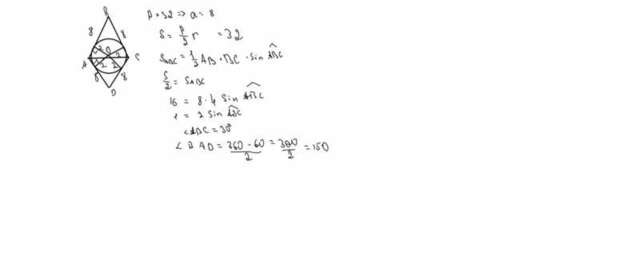 B
8 8
A O C
2 2 2 2
8 8
D
P = 32 => a = 8
S = P/2 r = 32
S_ABC = 1/2 AB · BC · sin ABC
S/2 = S_ABC
16 = 8 · 4 sin ABC
1 = 2 sin ABC
<ABC = 30°
< B A D = (360 - 60)/2 = 300/2 = 150